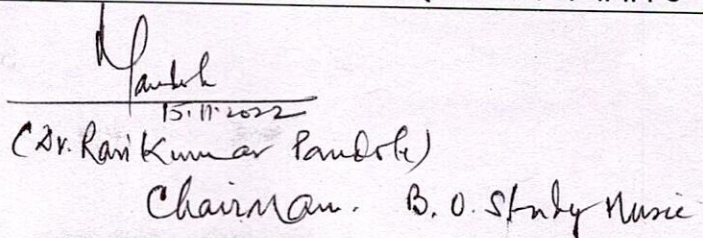 15.11.2022
(Dr. Ravi Kumar Pandole)
Chairman. B. O. Study Music